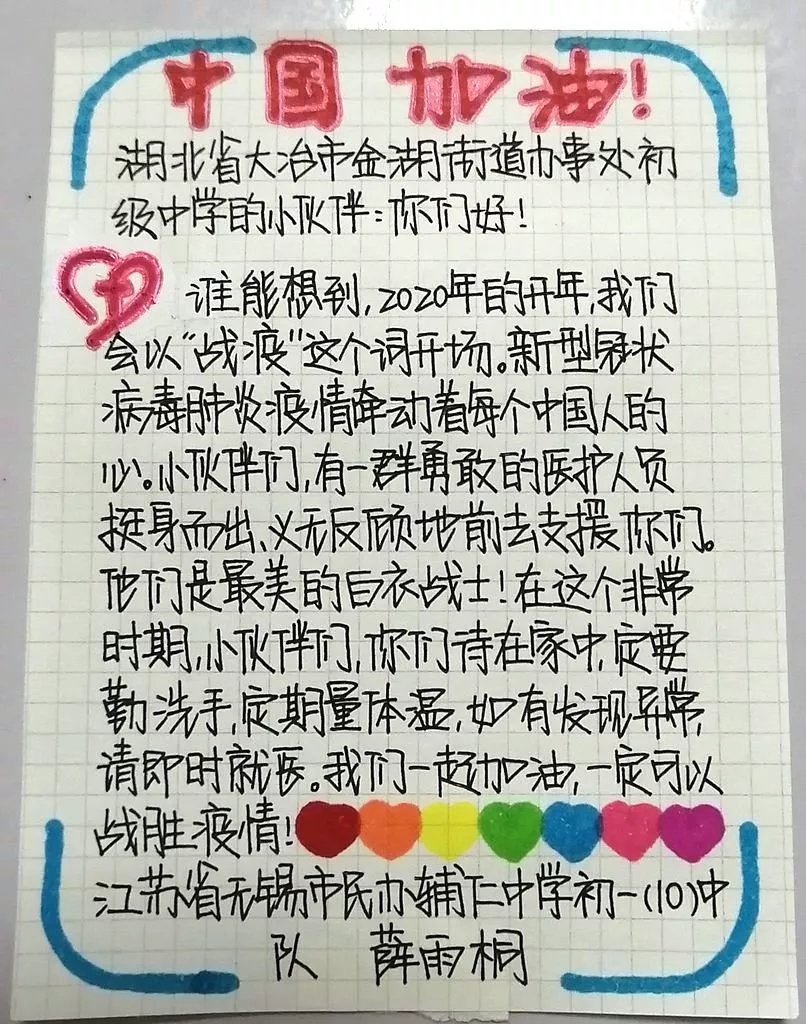 中国 加油！
湖北省大冶市金湖街道办事处初
级中学的小伙伴：你们好！
谁能想到，2020年的开年，我们
会以“战疫”这个词开场。新型冠状
病毒肺炎疫情牵动着每个中国人的
心。小伙伴们，有一群勇敢的医护人员
挺身而出、义无反顾地前去支援你们。
他们是最美的白衣战士！在这个非常
时期，小伙伴们，你们待在家中，定要
勤洗手，定期量体温，如有发现异常，
请即时就医。我们一起加油，一定可以
战胜疫情！
江苏省无锡市民办辅仁中学初一（10）中
队 薛雨桐